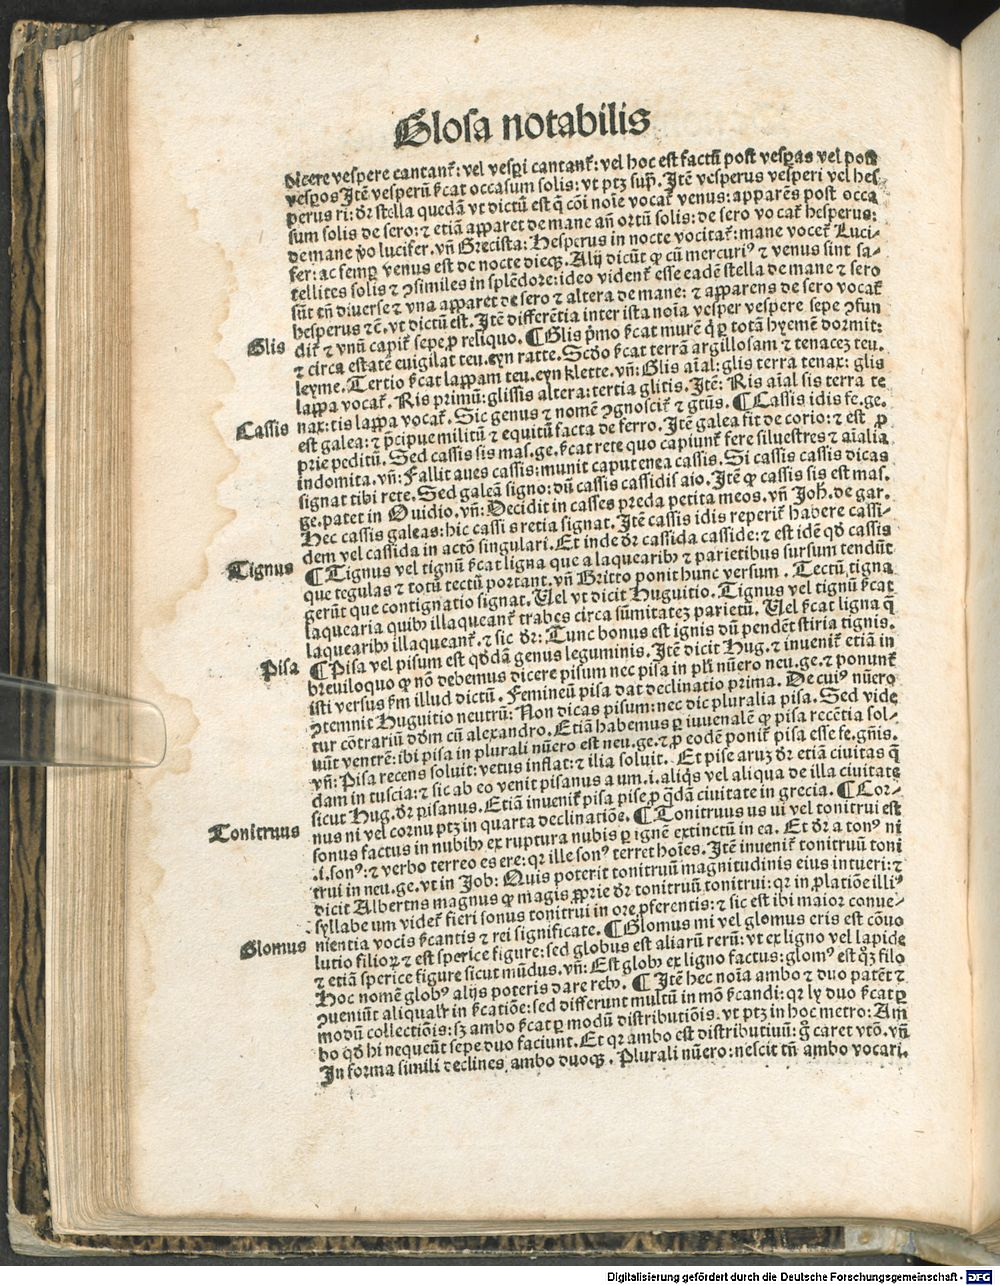 Glosa notabilis
dicere vespere cantant᷑: vel vesꝑi cantant᷑: vel hoc est factū post vesꝑas vel post
vesꝑos Itē vesperū ſ̄cat occasum solis: vt ptꝫ supͣ. Itē vesperus vesperi vel hes⸗
perus ri: dr̄ stella quedā vt dictū est q̄ cōi noīe vocat᷑ venus: apparēs post occa
sum solis de sero: ⁊ etiā apparet de mane añ ortū solis: de sero vocat᷑ hesperus:
de mane ꝟo lucifer. vñ Grecista: Hesperus in nocte vocitat᷑: mane vocet᷑ Luci⸗
fer: ac semꝑ venus est de nocte dieqꝫ. Alij dicūt ꝙ cū mercuriꝰ ⁊ venus sint sa⸗
tellites solis ⁊ ꝯsimiles in splēdore: ideo vident᷑ esse eadē stella de mane ⁊ sero
sūt tñ diuerse ⁊ vna apparet de sero ⁊ altera de mane: ⁊ apparens de sero vocat᷑
hesperus ⁊ē. vt dictū est. Itē differētia inter ista noīa vesper vespere sepe ꝯfun
Glis dit᷑ ⁊ vnū capit᷑ sepe ꝓ reliquo. ¶ Glis p̄mo ſ̄cat murē q̇ ꝑ totā hyemē dormit:
⁊ circa estatē euigilat teu. eyn ratte. Scḋo ſ̄cat terrā argillosam ⁊ tenaceꝫ teu.
leyme. Tertio ſ̄cat lappam teu. eyn klette. vñ: Glis aīal: glis terra tenax: glis
lappa vocat᷑. Ris primū: glissis altera: tertia glitis. Itē: Ris aīal sis terra te
Cassis nax: tis lappa vocat᷑. Sic genus ⁊ nomē ꝯgnoscit᷑ ⁊ gtūs. ¶ Cassis idis fe. ge.
est galea: ⁊ p̄cipue militū ⁊ equitū facta de ferro. Itē galea fit de corio: ⁊ est ꝓ
prie peditū. Sed cassis sis mas. ge. ſ̄cat rete quo capiunt᷑ fere siluestres ⁊ aīalia
indomita. vñ: Fallit aues cassis: munit caput enea cassis. Si cassis cassis dicas
signat tibi rete. Sed galeā signo: dū cassis cassidis aio. Itē ꝙ cassis sis est mas.
ge. patet in Ouidio. vñ: Decidit in casses preda petita meos. vñ Joh̄. de gar.
Hec cassis galeas: hic cassis retia signat. Itē cassis idis reperit᷑ habere cassi⸗
dem vel cassida in actō singulari. Et inde dr̄ cassida casside: ⁊ est idē qḋ cassis
Tignus ¶ Tignus vel tignū ſ̄cat ligna que a laquearibꝫ ⁊ parietibus sursum tendūt
que tegulas ⁊ totū tectū portant. vñ Britto ponit hunc versum. Tectū tigna
gerūt que contignatio signat. Uel vt dicit Huguitio. Tignus vel tignū ſ̄cat
laquearia quibꝫ illaqueant᷑ trabes circa sūmitateꝫ parietū. Uel ſ̄cat ligna q̄
laquearibꝫ illaqueant᷑. ⁊ sic dr̄: Tunc bonus est ignis dū pendēt stiria tignis.
Pisa ¶ Pisa vel pisum est qḋdā genus leguminis. Itē dicit Hug. ⁊ inuenit᷑ etiā in
breuiloquo ꝙ nō debemus dicere pisum nec pisa in pl̄i nūero neu. ge. ⁊ ponunt᷑
isti versus ſm illud dictū. Femineū pisa dat declinatio prima. De cuiꝰ nūero
ꝯtemnit Huguitio neutrū: Non dicas pisum: nec dic pluralia pisa. Sed vide
tur cōtrariū dḋm cū alexandro. Etiā habemus ꝑ iuuenalē ꝙ pisa recētia sol⸗
uūt ventrē: ibi pisa in plurali nūero est neu. ge. ⁊ ꝓ eodē ponit᷑ pisa esse fe. gñis.
vñ: Pisa recens soluit: vetus inflat: ⁊ ilia soluit. Et pise aruꝫ dr̄ etiā ciuitas q̄
dam in tuscia: ⁊ sic ab eo venit pisanus a um. i. aliq̇s vel aliqua de illa ciuitate
sicut Hug. dr̄ pisanus. Etiā inuenit᷑ pisa pise ꝓ q̄dā ciuitate in grecia. ¶ Cor⸗
Tonitruus nus ni vel cornu ptꝫ in quarta declinatiōe. ¶ Tonitruus us ui vel tonitrui est
sonus factus in nubibꝫ ex ruptura nubis ꝑ ignē extinctū in ea. Et dr̄ a tonꝰ ni
.i. sonꝰ: ⁊ verbo terreo es ere: qꝛ ille sonꝰ terret hoīes. Itē inuenit᷑ tonitruū toni
trui in neu. ge. vt in Job: Quis poterit tonitruū magnitudinis eius intueri: ⁊
dicit Albertus magnus ꝙ magis ꝓprie dr̄ tonitruū tonitrui: qꝛ in ꝓlatiōe illiꝰ
syllabe um videt᷑ fieri sonus tonitrui in ore ꝓferentis: ⁊ sic est ibi maior conue⸗
Glomus nientia vocis ſ̄cantis ⁊ rei significate. ¶ Glomus mi vel glomus eris est cōuo
lutio filioꝝ ⁊ est sperice figure: sed globus est aliarū rerū: vt ex ligno vel lapide
⁊ etiā sperice figure sicut mūdus. vñ: Est globꝫ ex ligno factus: glomꝰ est qꝫ filo
Hoc nomē globꝰ alijs poteris dare rebꝫ. ¶ Itē hec noīa ambo ⁊ duo patēt ⁊
ꝯueniūt aliqualr̄ in ſ̄catiōe: sed differunt multū in mō ſ̄candi: qꝛ ly duo ſ̄cat ꝑ
modū collectiōis: sꝫ ambo ſ̄cat ꝑ modū distributiōis. vt ptꝫ in hoc metro: Am
bo qḋ hi nequeūt sepe duo faciunt. Et qꝛ ambo est distributiuū: g̊ caret vtō. vñ
In forma simili declines ambo duoqꝫ. Plurali nūero: nescit tñ ambo vocari.
Digitalisierung gefördert durch die Deutsche Forschungsgemeinschaft - DFG